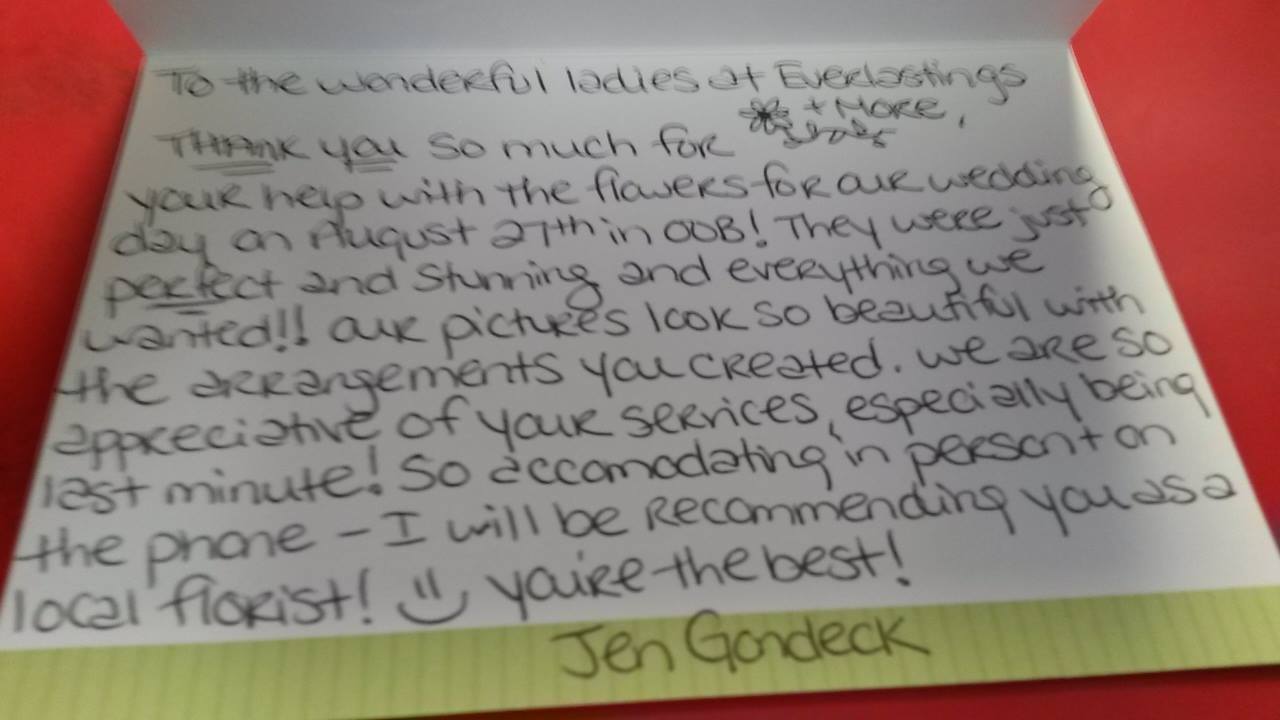 To the wonderful ladies at Everlastings
+ MORE,
THANK you so much for
your help with the flowers for our wedding
day on August 27th in OOB! They were just
perfect and stunning and everything we
wanted!! our pictures look so beautiful with
the arrangements you created. we are so
appreciative of your services, especially being
last minute! So accomodating in person + on
the phone - I will be recommending you as a
local florist! you're the best!
Jen Gondeck